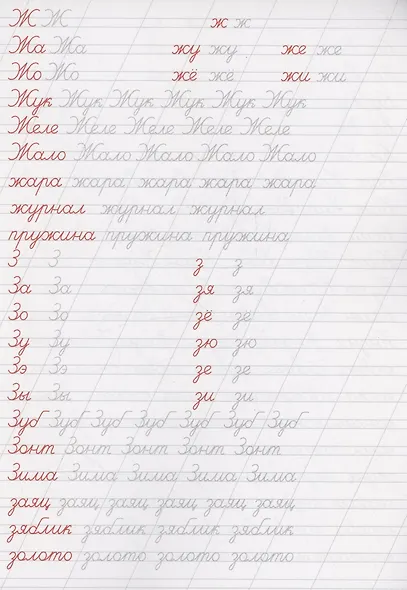 Ж Ж ж ж
Жа Жа жу жу же же
Жо Жо жё жё жи жи
Жук Жук Жук Жук Жук Жук
Желе Желе Желе Желе Желе
Жало Жало Жало Жало Жало
жара жара жара жара жара
журнал журнал журнал
пружина пружина пружина
З З з з
За За зя зя
Зо Зо зё зё
Зу Зу зю зю
Зэ Зэ зе зе
Зы Зы зи зи
Зуб Зуб Зуб Зуб Зуб Зуб Зуб
Зонт Зонт Зонт Зонт Зонт
Зима Зима Зима Зима Зима
заяц заяц заяц заяц заяц заяц
зяблик зяблик зяблик зяблик
золото золото золото золото